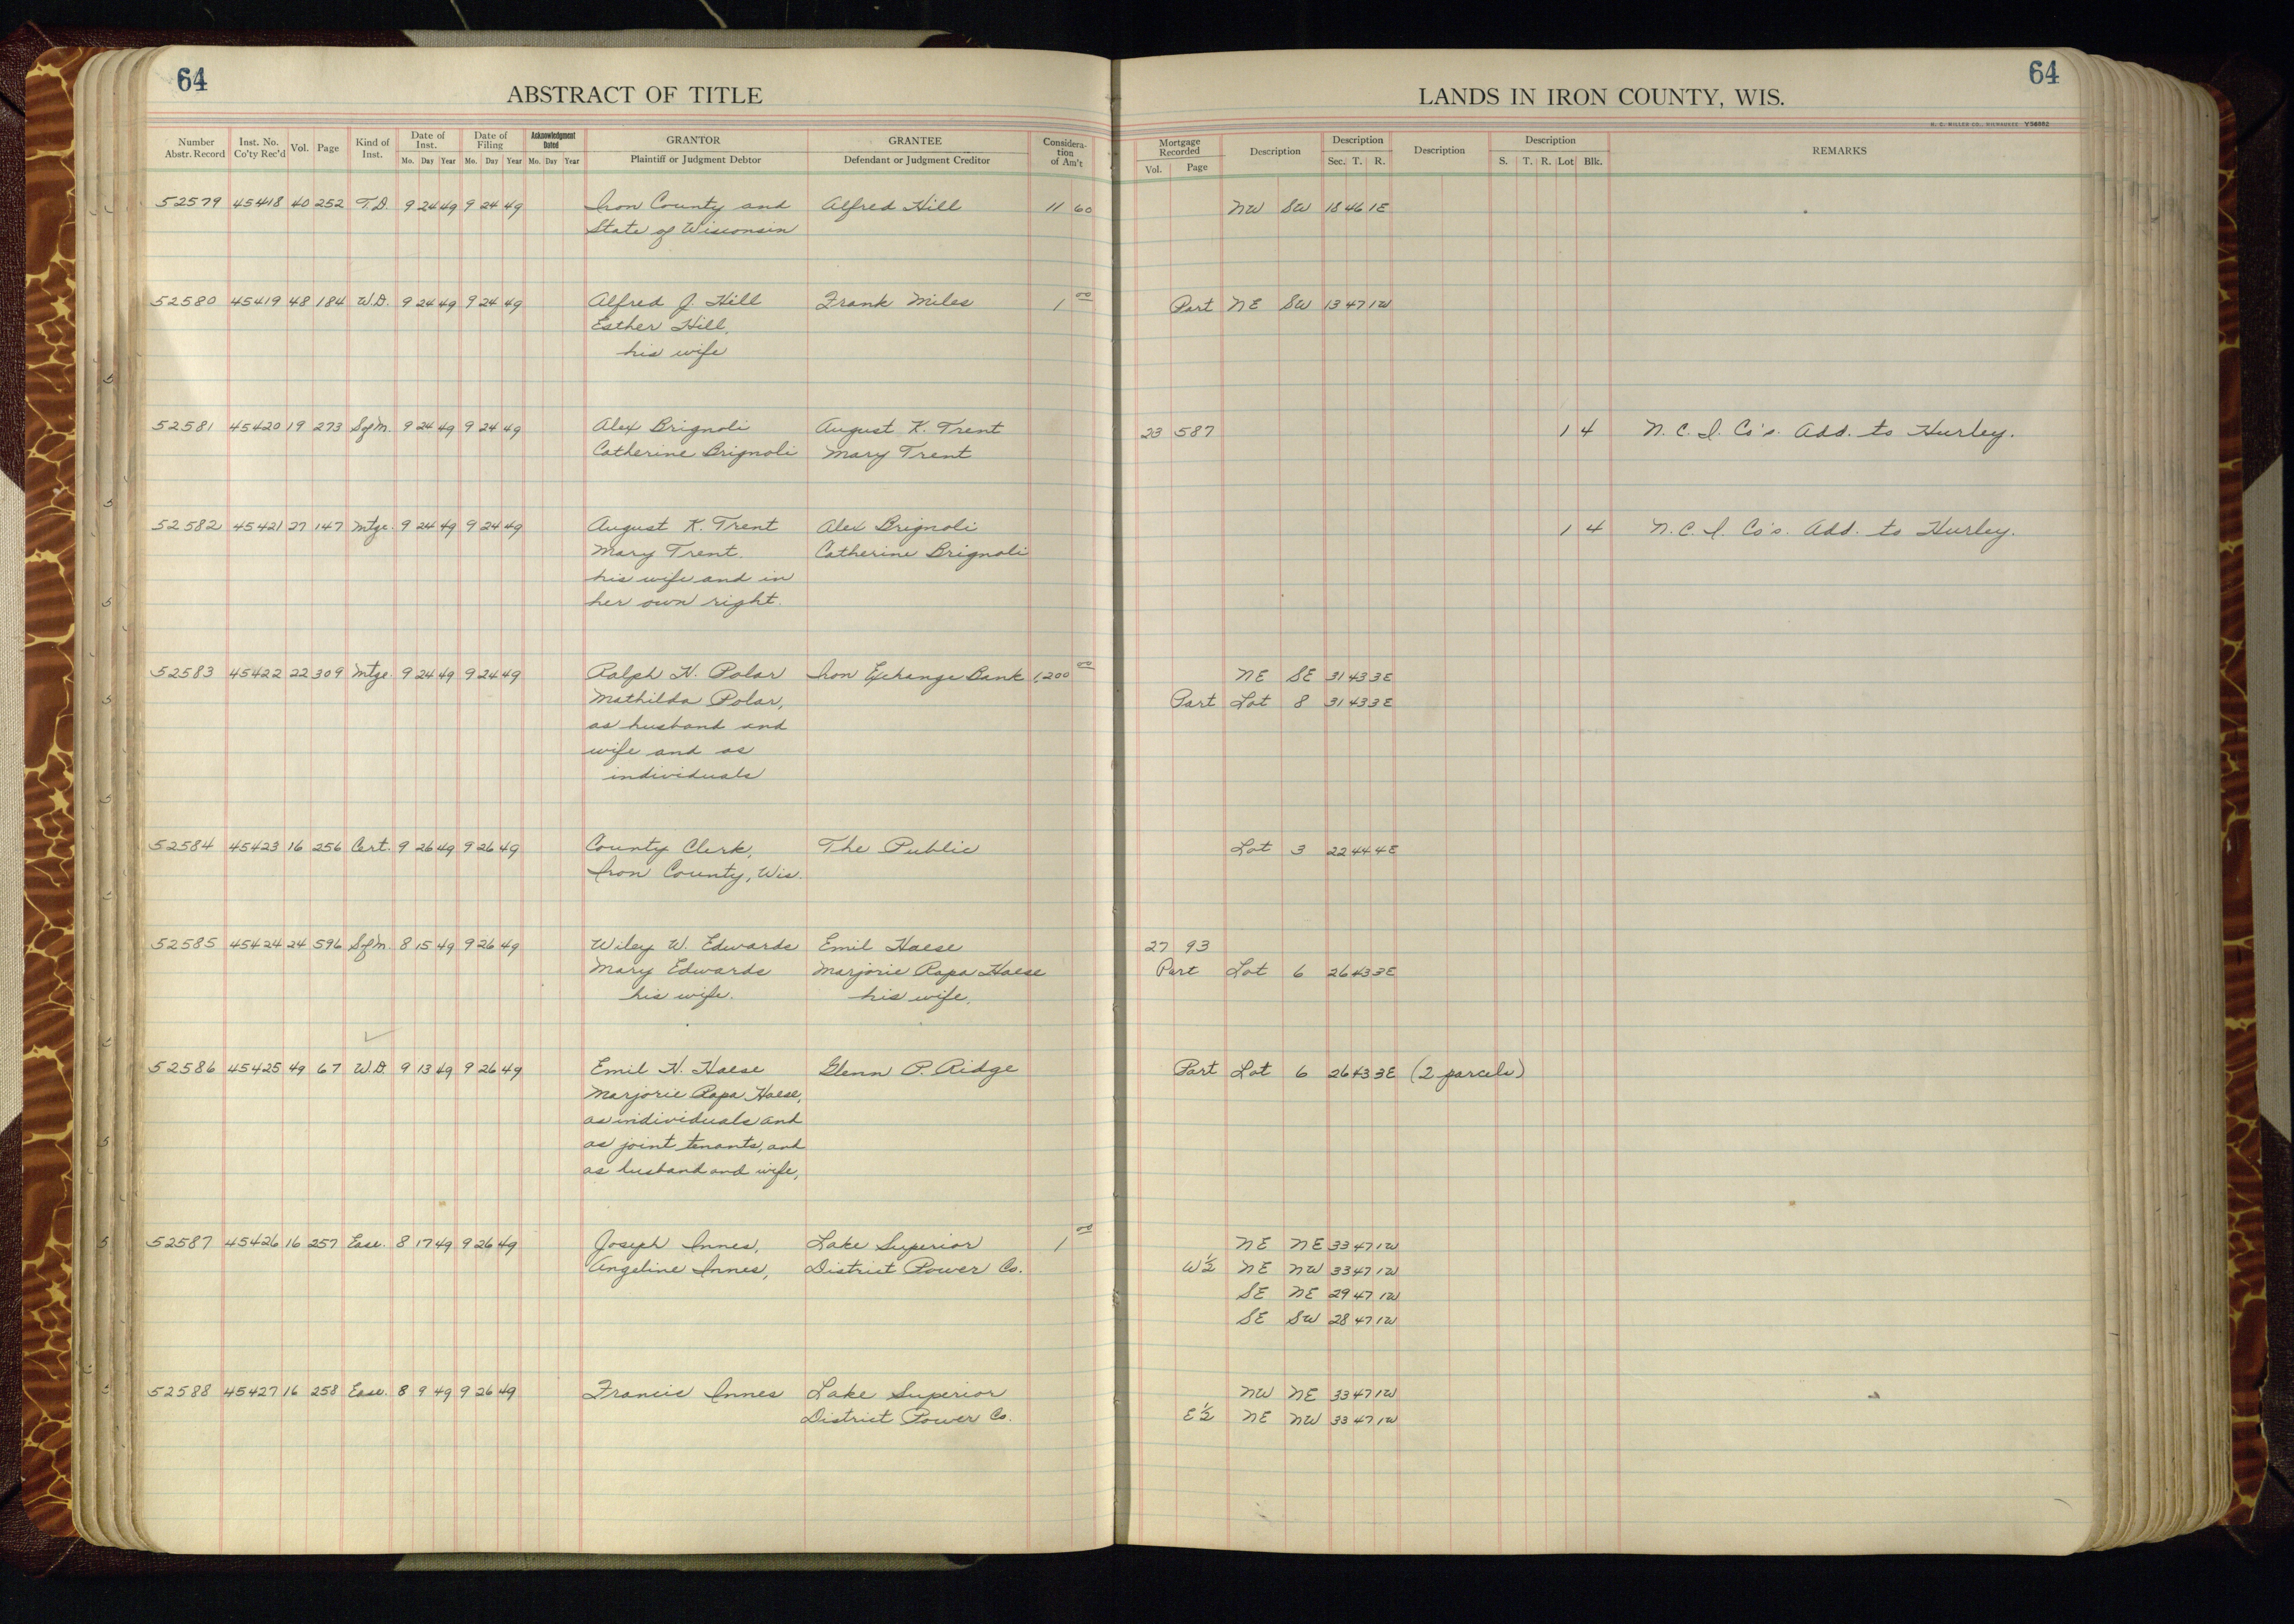 64
ABSTRACT OF TITLE
Number Abstr. Record Inst. No. Co'ty Rec'd Vol. Page Kind of Inst. Date of Inst. Mo. Day Year Date of Filing Mo. Day Year Acknowledgment Dated Mo. Day Year GRANTOR Plaintiff or Judgment Debtor GRANTEE Defendant or Judgment Creditor Considera-tion of Am't
52579 45418 40 252 T.D. 9 24 49 9 24 49 Iron County and Alfred Hill 11 60
State of Wisconsin
52580 45419 48 184 W.D. 9 24 49 9 24 49 Alfred J. Hill Frank Miles 1 00
Esther Hill,
his wife
52581 45420 19 273 SofM. 9 24 49 9 24 49 Alex Brignoli August K. Trent
Catherine Brignoli Mary Trent
52582 45421 27 147 Mtge. 9 24 49 9 24 49 August K. Trent Alex Brignoli
Mary Trent. Catherine Brignoli
his wife and in
her own right.
52583 45422 22 309 Mtge. 9 24 49 9 24 49 Ralph H. Polar Iron Exchange Bank 1,200 00
Mathilda Polar,
as husband and
wife and as
individuals
52584 45423 16 256 Cert. 9 26 49 9 26 49 County Clerk, The Public
Iron County, Wis.
52585 45424 24 596 SofM. 8 15 49 9 26 49 Wiley W. Edwards Emil Haese
Mary Edwards Marjorie Rapa Haese
his wife. his wife.
52586 45425 49 67 W.D. 9 13 49 9 26 49 Emil H. Haese Glenn P. Ridge
Marjorie Rapa Haese,
as individuals and
as joint tenants, and
as husband and wife,
52587 45426 16 257 Ease. 8 17 49 9 26 49 Joseph Innes, Lake Superior 1 00
Angeline Innes, District Power Co.
52588 45427 16 258 Ease. 8 9 49 9 26 49 Francis Innes Lake Superior
District Power Co.
64
LANDS IN IRON COUNTY, WIS.
H. C. MILLER CO., MILWAUKEE V58082
Mortgage Recorded Vol. Page Description Description Sec. T. R. Description Description S. T. R. Lot Blk. REMARKS
NW SW 18 46 1E
Part NE SW 13 47 1W
23 587 1 4 N.C.I. Co's. Add. to Hurley.
1 4 N.C.I. Co's. Add. to Hurley.
NE SE 31 43 3E
Part Lot 8 31 43 3E
Lot 3 22 44 4E
27 93
Part Lot 6 26 43 3E
Part Lot 6 26 43 3E (2 parcels)
NE NE 33 47 1W
W½ NE NW 33 47 1W
SE NE 29 47 1W
SE SW 28 47 1W
NW NE 33 47 1W
E½ NE NW 33 47 1W